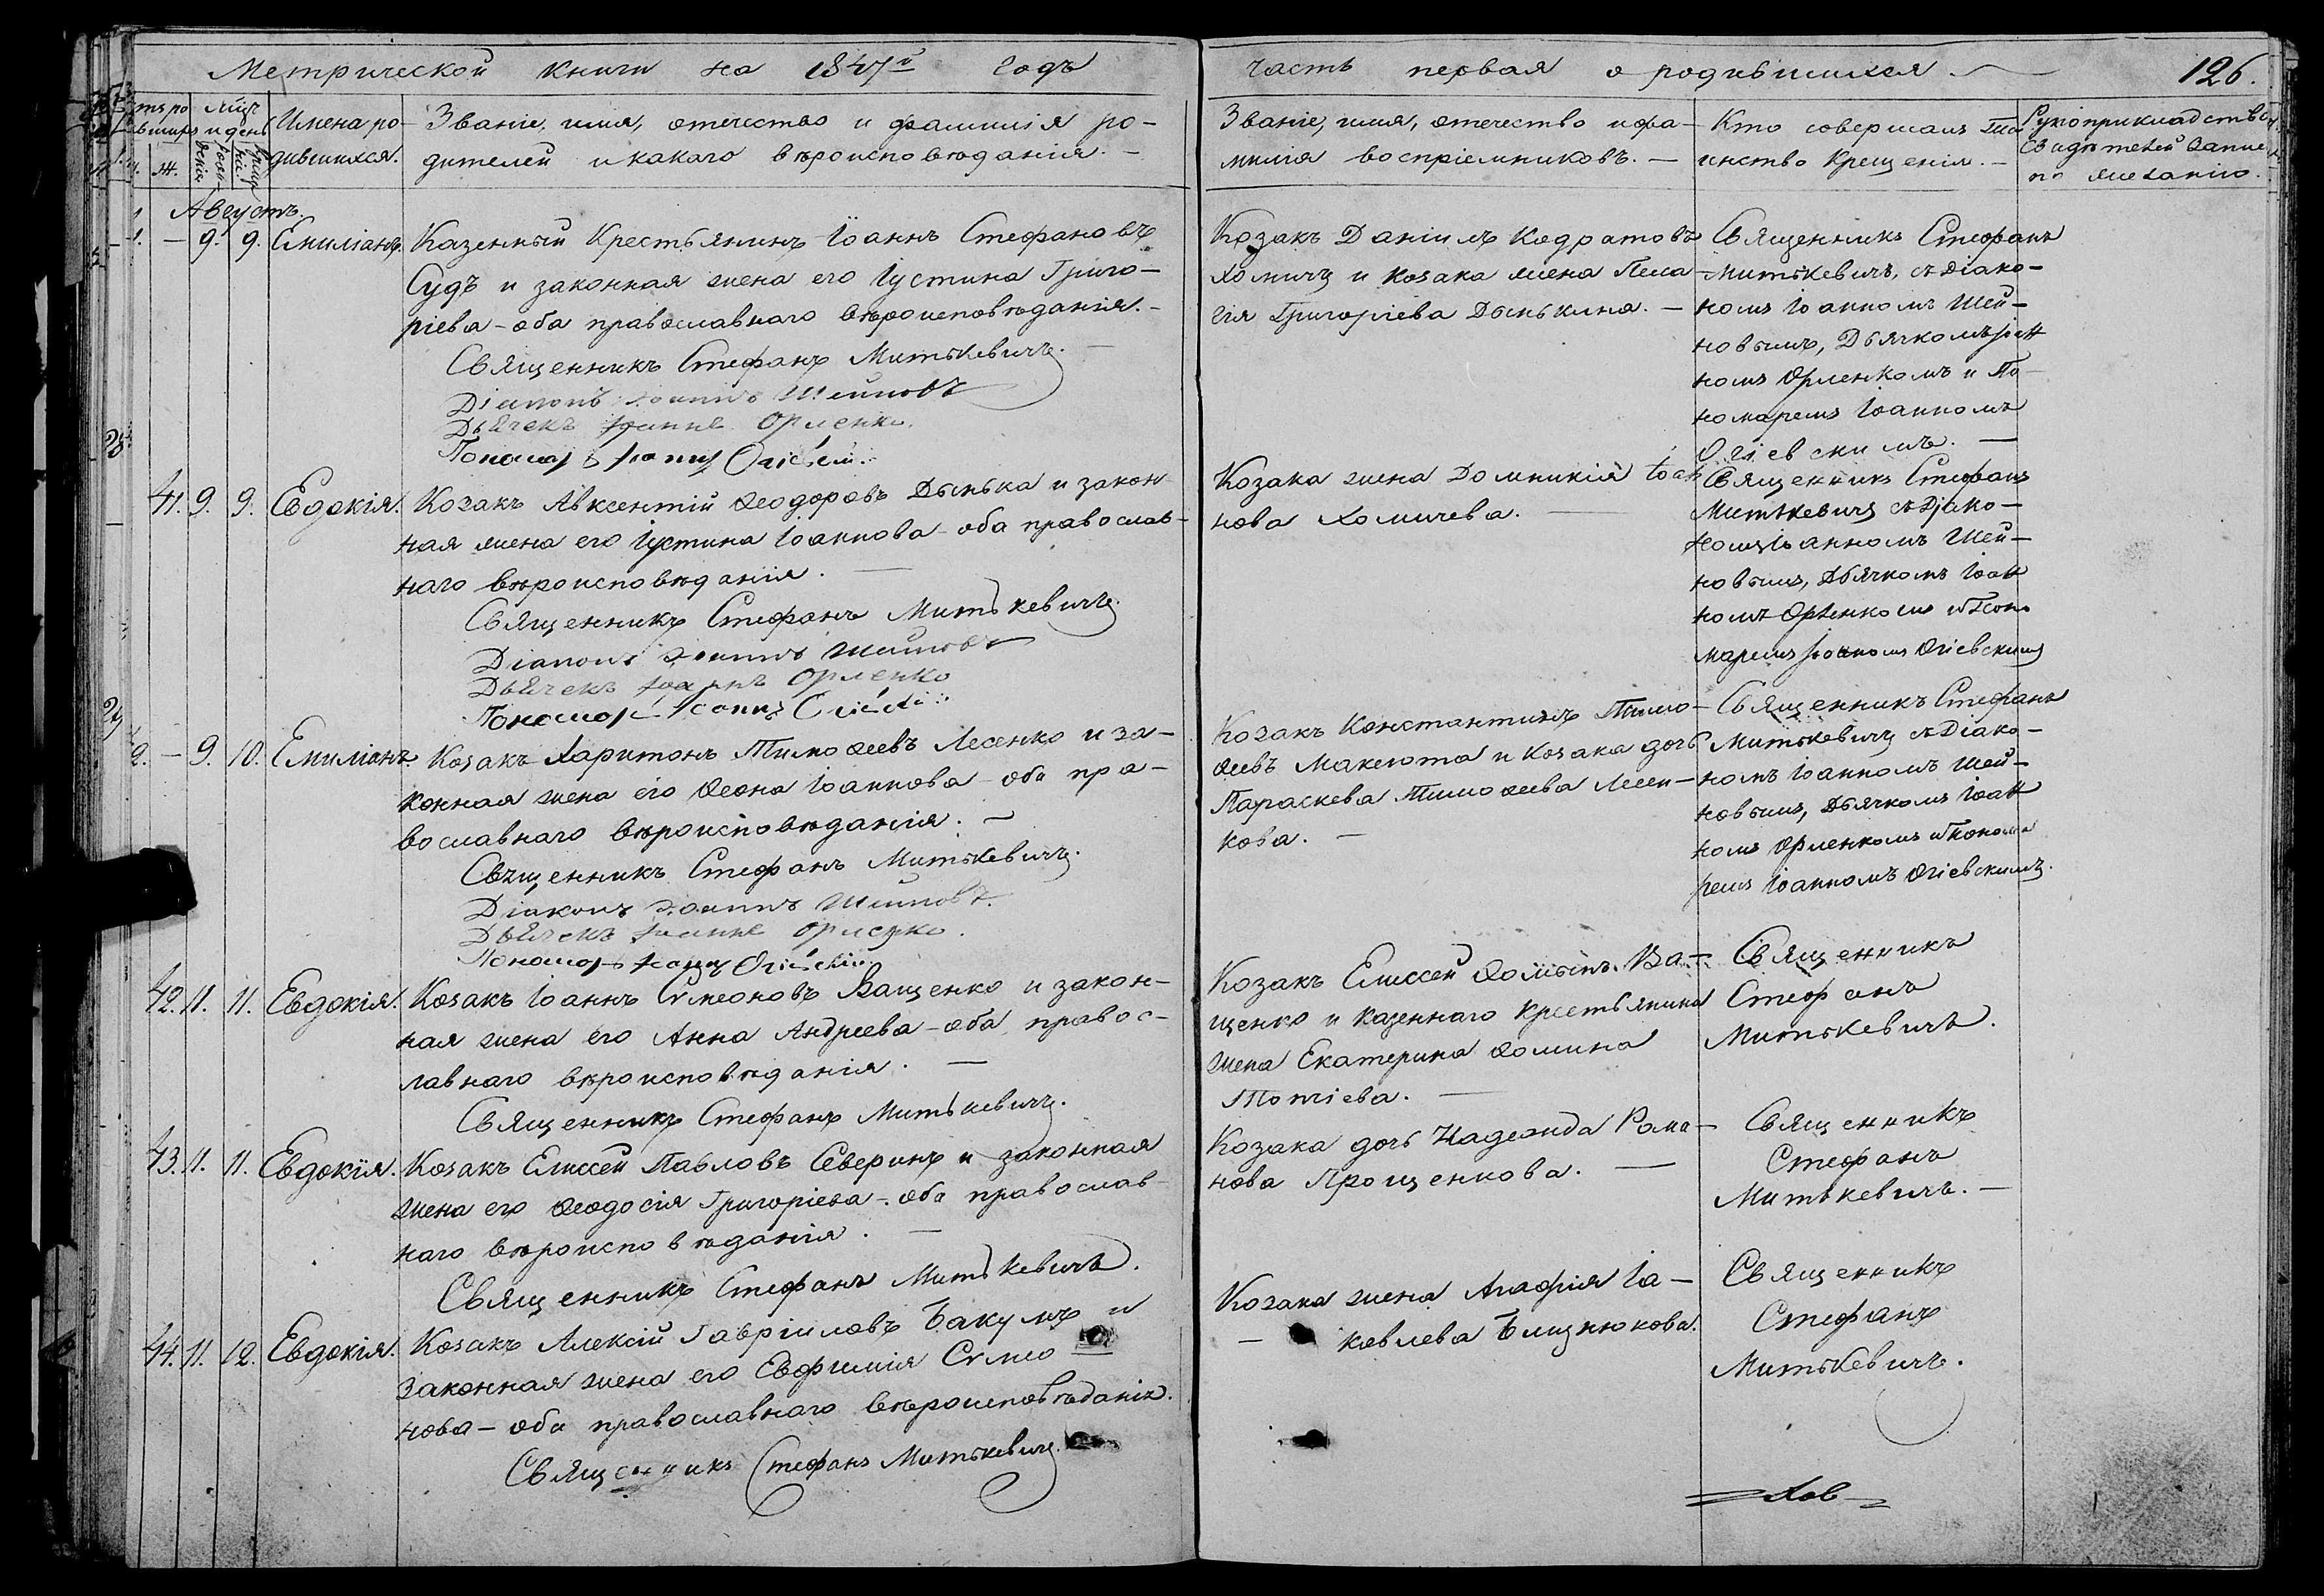 Метрической книги на 1847й годъ
часть первая о родившихся.
126.
Имена ро-
дившихся.
Званіе, имя, отечество и фамилія ро-
дителей и какаго вѣроисповѣданія. -
Званіе, имя, отечество и фа-
милія воспріемниковъ. -
Кто совершалъ Таи
инство Крещенія. -
Рукоприкладство
свидѣтелей записи
по желанію.
м. Ж.
Августъ.
1. - 9. 9. Емиліанъ.
Казенный Крестьянинъ Іоаннъ Стефановъ
Судъ и законная жена его Іустина Григо-
ріева - оба православнаго вѣроисповѣданія. -
Священникъ Стефанъ Митькевичъ.
Діаконъ Іоаннъ Шейновъ
Дьячекъ Іоаннъ Орленко.
Пономарь Іоаннъ Огіевскій
Козакъ Даніилъ Кодратовъ
Хомичъ и козака жена Пела-
гія Григоріева Дынькина. -
Священникъ Стефанъ
Митькевичъ, съ Діако-
номъ Іоанномъ Шей-
новымъ, Дьячкомъ Іоан
номъ Орленкомъ и По-
номаремъ Іоанномъ
Огіевскимъ. -
41. 9. 9. Евдокія.
Козакъ Авксентій Ѳеодоровъ Дынька и закон-
ная жена его Іустина Іоаннова - оба православ-
наго вѣроисповѣданія. -
Священникъ Стефанъ Митькевичъ.
Діаконъ Іоаннъ Шейновъ
Дьячекъ Іоаннъ Орленко
Пономарь Іоаннъ Огіевскій
Козака жена Домникія Іоан
нова Хомичева. -
Священникъ Стефанъ
Митькевичъ съ Діако-
номъ Іоанномъ Шей-
новымъ, Дьячкомъ Іоан
номъ Орленкомъ и Поно
маремъ Іоанномъ Огіевскимъ
2. - 9. 10. Емиліанъ.
Козакъ Харитонъ Тимоѳеевъ Лесенко и за-
конная жена его Ѳеона Іоаннова - оба пра-
вославнаго вѣроисповѣданія. -
Священникъ Стефанъ Митькевичъ.
Діаконъ Іоаннъ Шейновъ.
Дьячекъ Іоаннъ Орленко.
Пономарь Іоаннъ Огіевскій
Козакъ Константинъ Тимо-
ѳеевъ Макеота и Козака дочь
Параскева Тимоѳеева Лесен-
кова. -
Священникъ Стефанъ
Митькевичъ съ Діако-
номъ Іоанномъ Шей-
новымъ, Дьячкомъ Іоан
номъ Орленкомъ и Понома
ремъ Іоанномъ Огіевскимъ.
42. 11. 11. Евдокія.
Козакъ Іоаннъ Сѵмеоновъ Ващенко и закон-
ная жена его Анна Андреева - оба правос-
лавнаго вѣроисповѣданія. -
Священникъ Стефанъ Митькевичъ.
Козакъ Елиссей Ѳоминъ Ва-
щенко и казеннаго Крестьянина
жена Екатерина Ѳомина
Топчіева. -
Священникъ
Стефанъ
Митькевичъ.
43. 11. 11. Евдокія.
Козакъ Елиссей Павловъ Северинъ и законная
жена его Ѳеодосія Григоріева - оба православ-
наго вѣроисповѣданія. -
Священникъ Стефанъ Митькевичъ.
Козака дочь Надежда Рома-
нова Прощенкова. -
Священникъ
Стефанъ
Митькевичъ. -
44. 11. 12. Евдокія.
Козакъ Алексій Гавріиловъ Бакумъ и
законная жена его Евфимія Сѵмео
нова - оба православнаго вѣроисповѣданія.
Священникъ Стефанъ Митькевичъ.
Козака жена Агафія Іа-
ковлева Близнюкова.
Священникъ
Стефанъ
Митькевичъ.